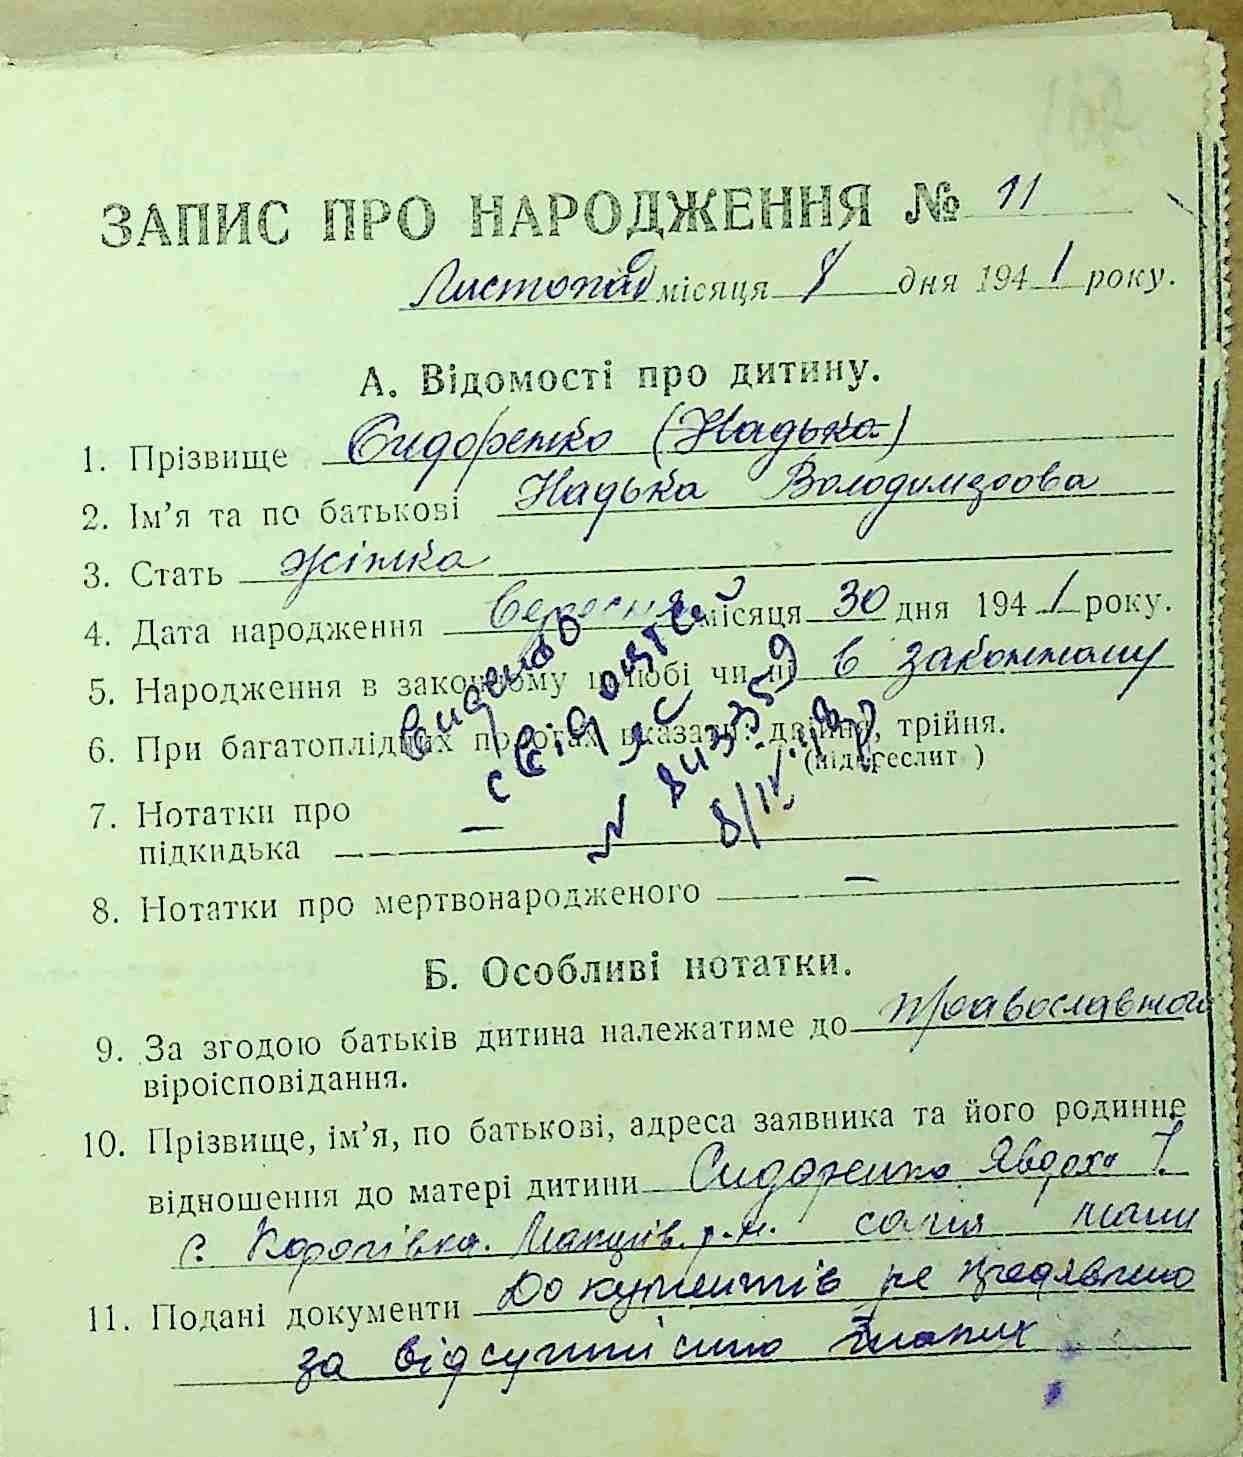 ЗАПИС ПРО НАРОДЖЕННЯ № 11
Листопад місяця 8 дня 1941 року.
А. Відомості про дитину.
1. Прізвище Сидоренко (Надька)
2. Ім'я та по батькові Надька Володимирова
3. Стать жінка
4. Дата народження Вересня місяця 30 дня 1941 року.
5. Народження в законному шлюбі чи ні в законному
6. При багатоплідних пологах вказати: двійня, трійня.
(підкреслит )
7. Нотатки про
підкидька —
8. Нотатки про мертвонародженого —
Б. Особливі нотатки.
9. За згодою батьків дитина належатиме до православного
віроісповідання.
10. Прізвище, ім'я, по батькові, адреса заявника та його родинне
відношення до матері дитини Сидоренко Явдоха
с. сама мати
11. Подані документи Документів не предявлено
за відсутністю